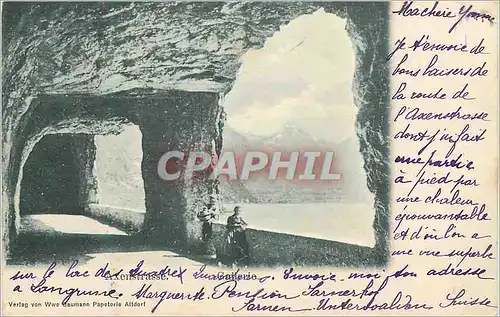 Ma chère Yvonne
Je t'envoie de
bons baisers de
la route de
l'Axenstrasse
dont j'ai fait
une partie
à pied par
une chaleur
épouvantable
et d'où l'on a
une vue superbe
CPARPHIL
Axenstrasse. Gallerie
sur le lac des Quatre Cantons. Envoie-moi son adresse
à Langrune. Marguerite. Pension Sarnerhof
Verlag von Wwe Baumann Papeterie Altdorf
Sarnen. Unterwalden Suisse